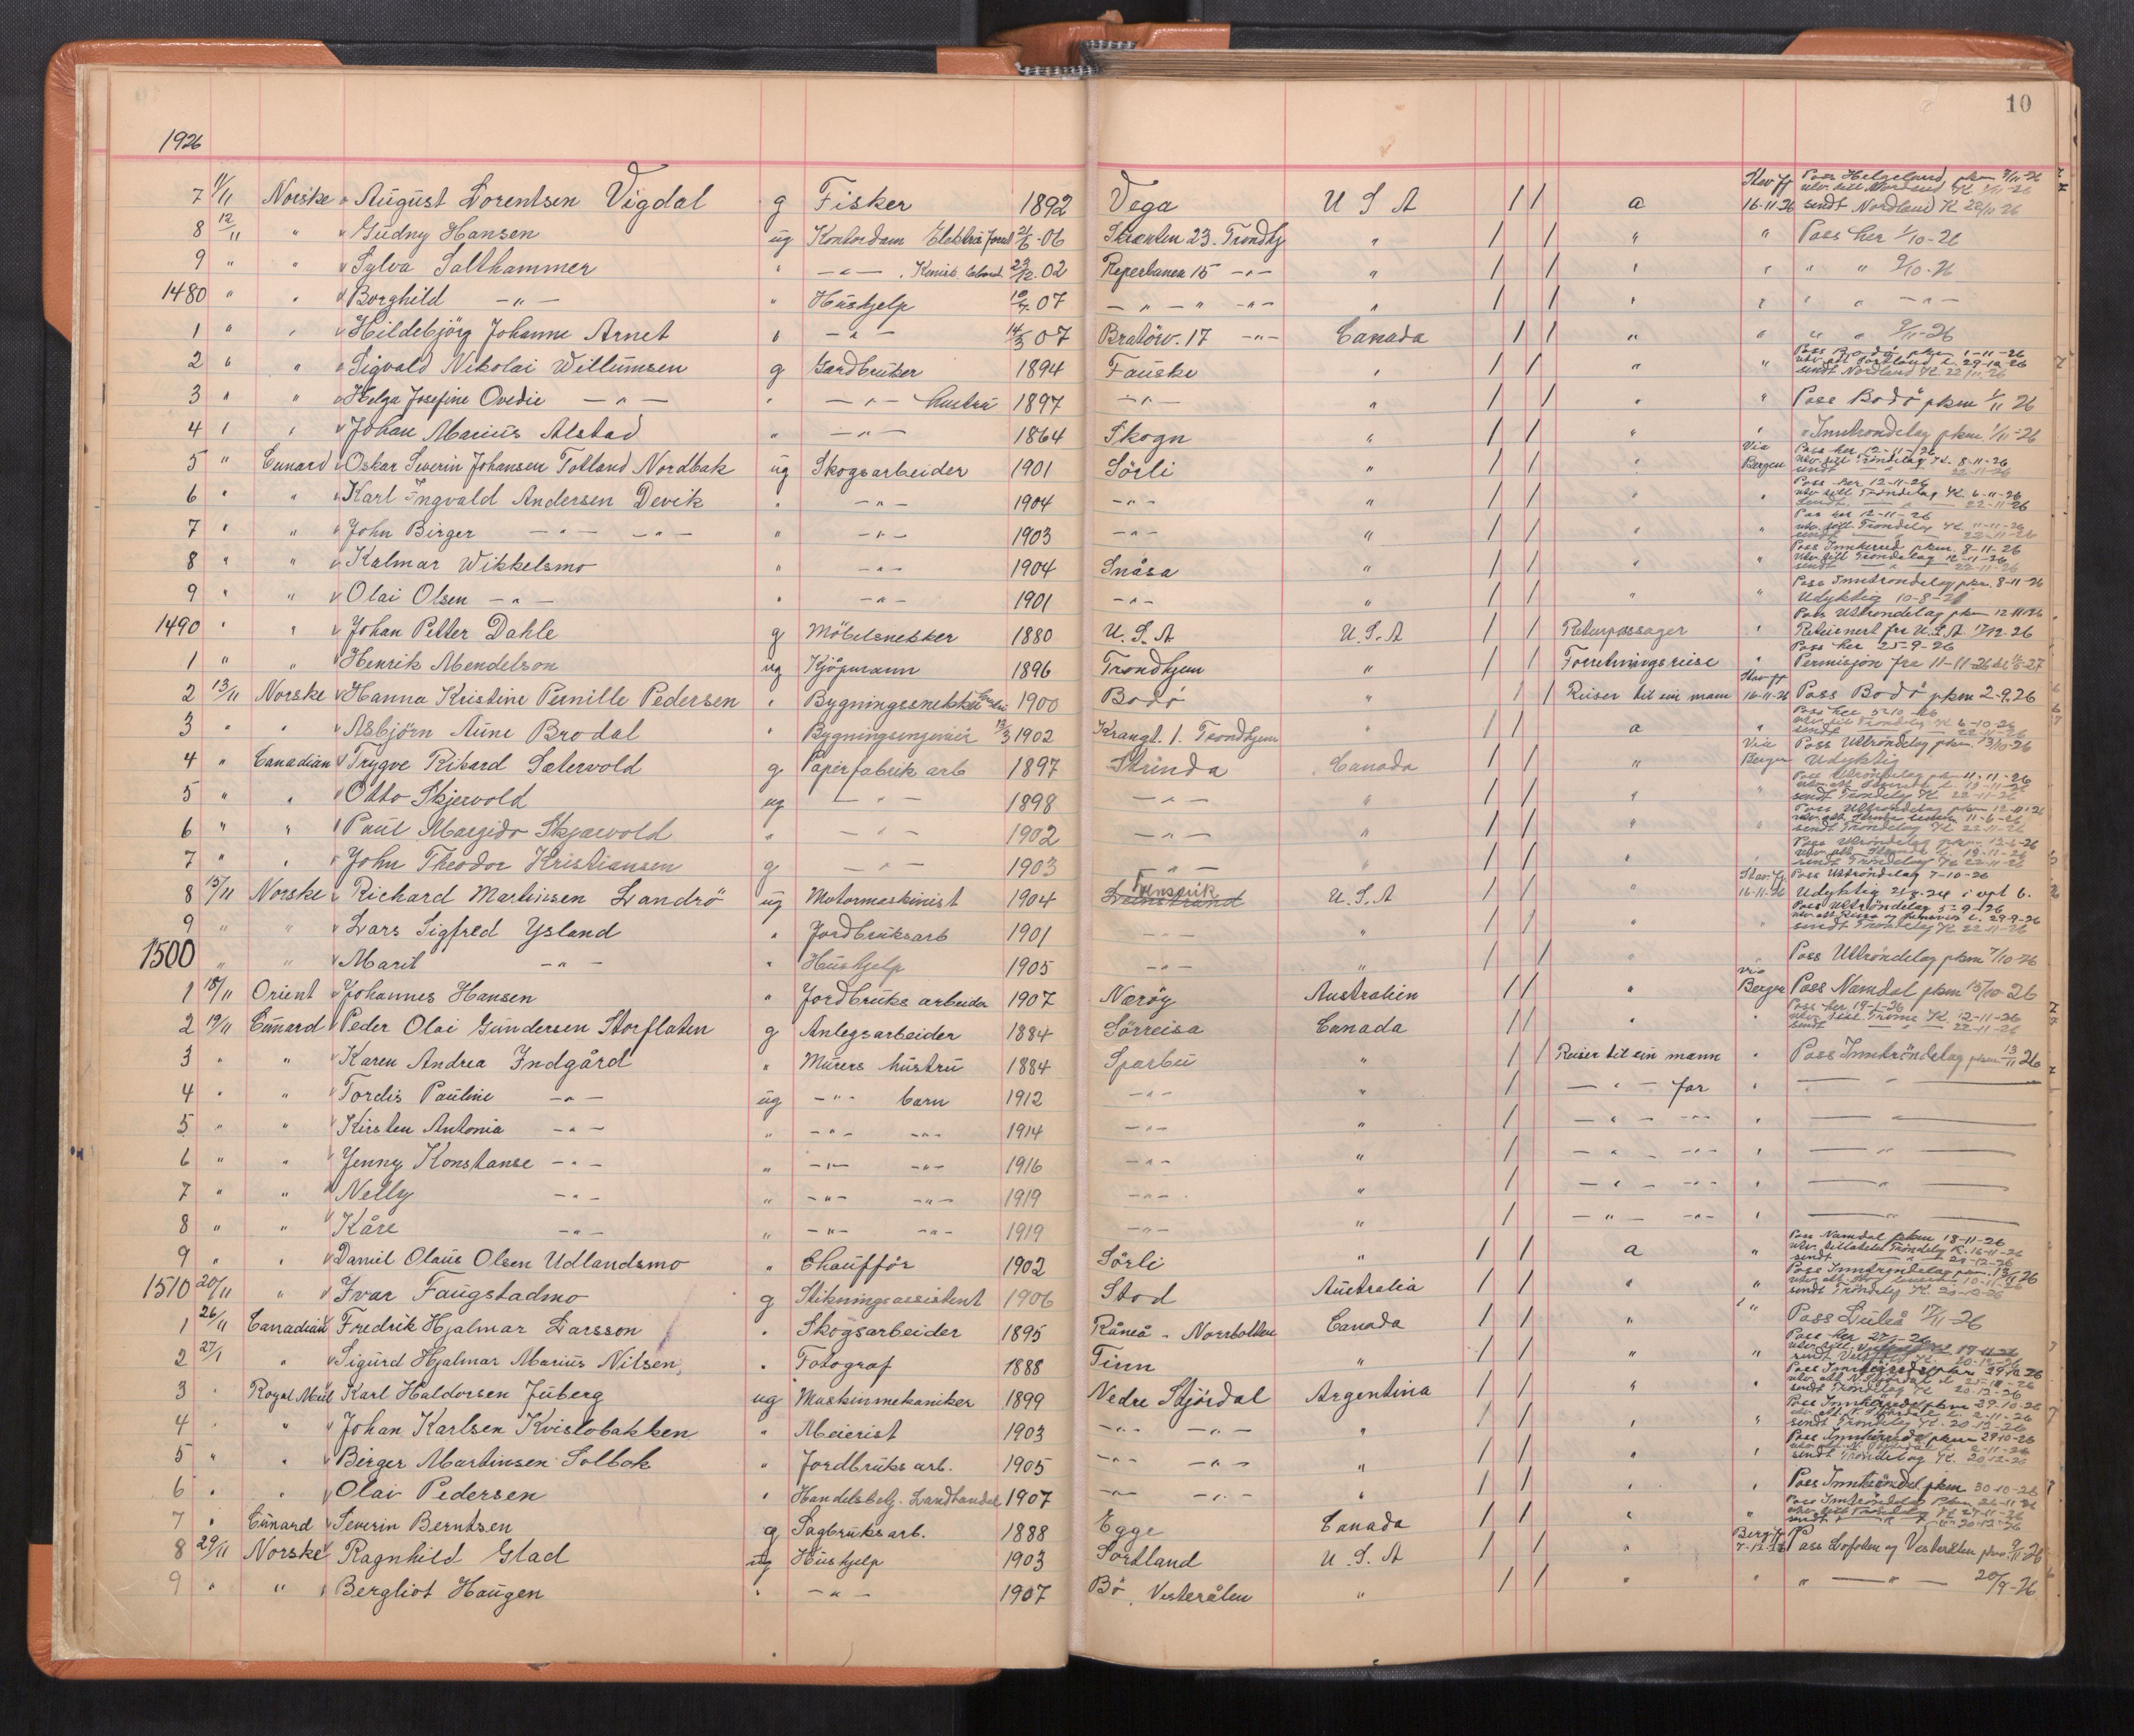 10
1926
7 11/11 Norske " August Lorentsen Vigdal g Fisker 1892 Vega U S A / / a Stav fj 16-11-26 Pass Helgeland pkm 9/11-26 utv. till Nordland K 9/11-26 sendt Nordland K 22/11 26
8 12/11 " " Gudny Hansen ug Kontordam 21/6-06 23. Trondhj " / / " " Pass her 1/10-26
9 " " Sylva Salthammer " -"- 23/12.02 Reperbanen 15 -"- " / / " " " " 9/10-26
1480 " " Borghild -"- " Hüshjelp 07 -"-"-"- " / / " " " " -"-
1 " " Hildebjörg Johanne Arnet " -"- 14/3 07 Bratörv. 17 -"- Canada / / " " " " 9/11-26
2 " " Sigvald Nikolai Willumsen g Gardbruker 1894 Fauske " / / " " Pass Bodö pkm 1-11-26 29-10-26 sendt Nordland K. 22/11-26
3 " " Helga Josefine Ovedie -"- " -"- hustru 1897 -"- " / / " " Pass Bodö pkm 1/11 26
4 " " Johan Marius Alstad " -"- 1864 Skogn " / / " " " Inntrondelag pkm 1/11-26
5 " Cunard Oskar Severin Johansen Totland Nordbak ug Skogsarbeider 1901 Sörli " / / " Via Bergen Pass her 12-11-26 utv till Tröndelag K. 8-11-26 sendt -"- 22-11-26
6 " " Karl Ingvald Andersen Devik " -"- 1904 -"- " / / " " Pass her 12-11-26 utv till Tröndelag K. 6-11-26 sendt -"- 22-11-26
7 " " John Birger -"- -"- " -"- 1903 -"- " / / " " Pass her 12-11-26 utv. till Trondelag K. 11-11-26 sendt -"- 22-11-26
8 " " Kalmar Wikkelsmo " -"- 1904 Snåsa " / / " " Pass Innherred pkm. 8-11-26 utv till Trondelag 12-11-26 sendt -"- 22-11-26
9 " " Olai Olsen -"- " -"- 1901 -"- " / / " " Pass Inntröndelag pkm. 8-11-26 Udyktig 10-8-21
1490 " " Johan Petter Dahle g Möbelsnekker 1880 U. S. A U. S. A / / Returpassager " Pass Uttrondelag pkm 12-11-26 Returnert fra U.S.A. 17/12-26
1 " " Henrik Mendelson ug Kjöpmann 1896 Trondhjem " / / Forretningsreise " Pass her 25-9-26 Permisjon fra 11-11-26 til
2 13/11 Norske Hanna Kristine Pernille Pedersen " Bygningssnekker 1900 Bodö " / / Reiser til ein mann Stav fj 16-11-26 Pass Bodö pkm 2-9.26
3 " " Asbjörn Aune Brodal " Bygningsingeniör 13/3 1902 Krangt. 1. Trondhjem " / / a " Pass her 5-10-26 utv till Trondelag K 6-10-26 sendt -"- 22-11-26
4 " Canadian Trygve Rikard Sætervold g Papirfabrik arb 1897 Strinda Canada / / " Via Bergen Pass Uttröndelag pkm. 13/10-26 Udyktig
5 " " Otto Skjervold ug -"- 1898 -"- " / / " " Pass Uttröndelag pkm 11-11-26 sendt Trondelag K 22-11-26
6 " " Paul Margido Skjærvold " -"- 1902 -"- " / / " " Pass Uttröndelag pkm 12-11-26 sendt Tröndelag K 22-11-26
7 " " John Theodor Kristiansen g -"- 1903 -"- " / / " " Pass Uttröndelag sendt Tröndelag K 22-11-26
8 15/11 Norske Richard Martinsen Landrö ug Motormaskinist 1904 Leinstrand U. S. A / / " Stav. fj. 16-11-26 Pass Uttröndelag 7-10-26 Udyktig
9 " " Lars Sigfred Ysland " Jordbruksarb 1901 -"- " / / " " Pass Uttröndelag 5-9-26 29-9-26 sendt Tröndelag K 22-11-26
1500 " " Marit -"- " Hüshjelp 1905 -"- " / / " " Pass Uttröndelag pkm 7/10-26
1 18/11 Orient Johannes Hansen " Jordbruks arbeider 1907 Næröy Australien / / " via Bergen Pass Namdal pkm 15/10-26
2 19/11 Cunard Peder Olai Gundersen Storflaten g Anlegsarbeider 1884 Sörreisa Canada / / " " Pass her 19-1-26 utv. till Troms K. 12-11-26 sendt -"- 22-11-26
3 " " Karen Andrea Indgård " Murers hustru 1884 Sparbu " / / Reiser til ein mann " Pass Inntröndelag pkm 13/11 26
4 " " Tordis Pauline -"- ug -"- barn 1912 -"- " / -"- far " -"-
5 " " Kirsten Antonia -"- " -"- -"- 1914 -"- " / -"- -"- " -"-
6 " " Jenny Konstanse -"- " -"- -"- 1916 -"- " / -"- -"- " -"-
7 " " Nelly -"- " -"- -"- 1919 -"- " / -"- -"- " -"-
8 " " Kåre -"- " -"- -"- 1919 -"- " / -"- -"- " -"-
9 " " Daniel Olaus Olsen Udlandsmo " Chaufför 1902 Sörli " / / a " Pass Namdal pkm 18-11-26 Tröndelag K. 16-11-26 sendt -"- 20-12-26
1510 20/11 " Ivar Faugstadmo g Stikningsassistent 1906 Stod Australia / / " " Pass Inntröndelag pkm. 13/11 26 sendt Tröndelag K. 20-12-26
1 26/11 Canadian Fredrik Hjalmar Larsson " Skogsarbeider 1895 Råneå - Norrbotten Canada / / " " Pass Luleå 17/11-26
2 27/1 " Sigurd Hjalmar Marius Nilsen " Fotograf 1888 Tinn " / / " " Pass her 27/1-26 20-12-26
3 " Royal Mail Karl Haldorsen Juberg ug Maskinmekaniker 1899 Nedre Stjördal Argentina / / " " sendt Tröndelag K 20-12-26
4 " " Johan Karlsen Kvislobakken " Meierist 1903 -"- -"- " / / " " Pass Innherred pkm 29-10-26 sendt Tröndelag K. 20-12-26
5 " " Birger Martinsen Solbak " Jordbruks arb. 1905 -"- -"- " / / " " Pass Innherred pkm 29-10-26 sendt Tröndelag K. 20-12-26
6 " " Olav Pedersen " Handelsbetj. Landhandel 1907 -"- -"- " / / " " Pass Inntröndel pkm 30-10-26
7 " Cunard Severin Berntsen g Sagbruksarb. 1888 Egge Canada / / " " Pass Inntröndelag pkm 26-11-26
8 29/11 Norske Ragnhild Glad ug Hüshjelp 1903 Sortland U. S. A / / " Berg. fj 7-12-26 Pass Lofoten og Vesterålen pkm 9/11-26
9 " " Bergliot Haugen " -"- 1907 Bö, Vesterålen " / / " " " -"- 20/9-26